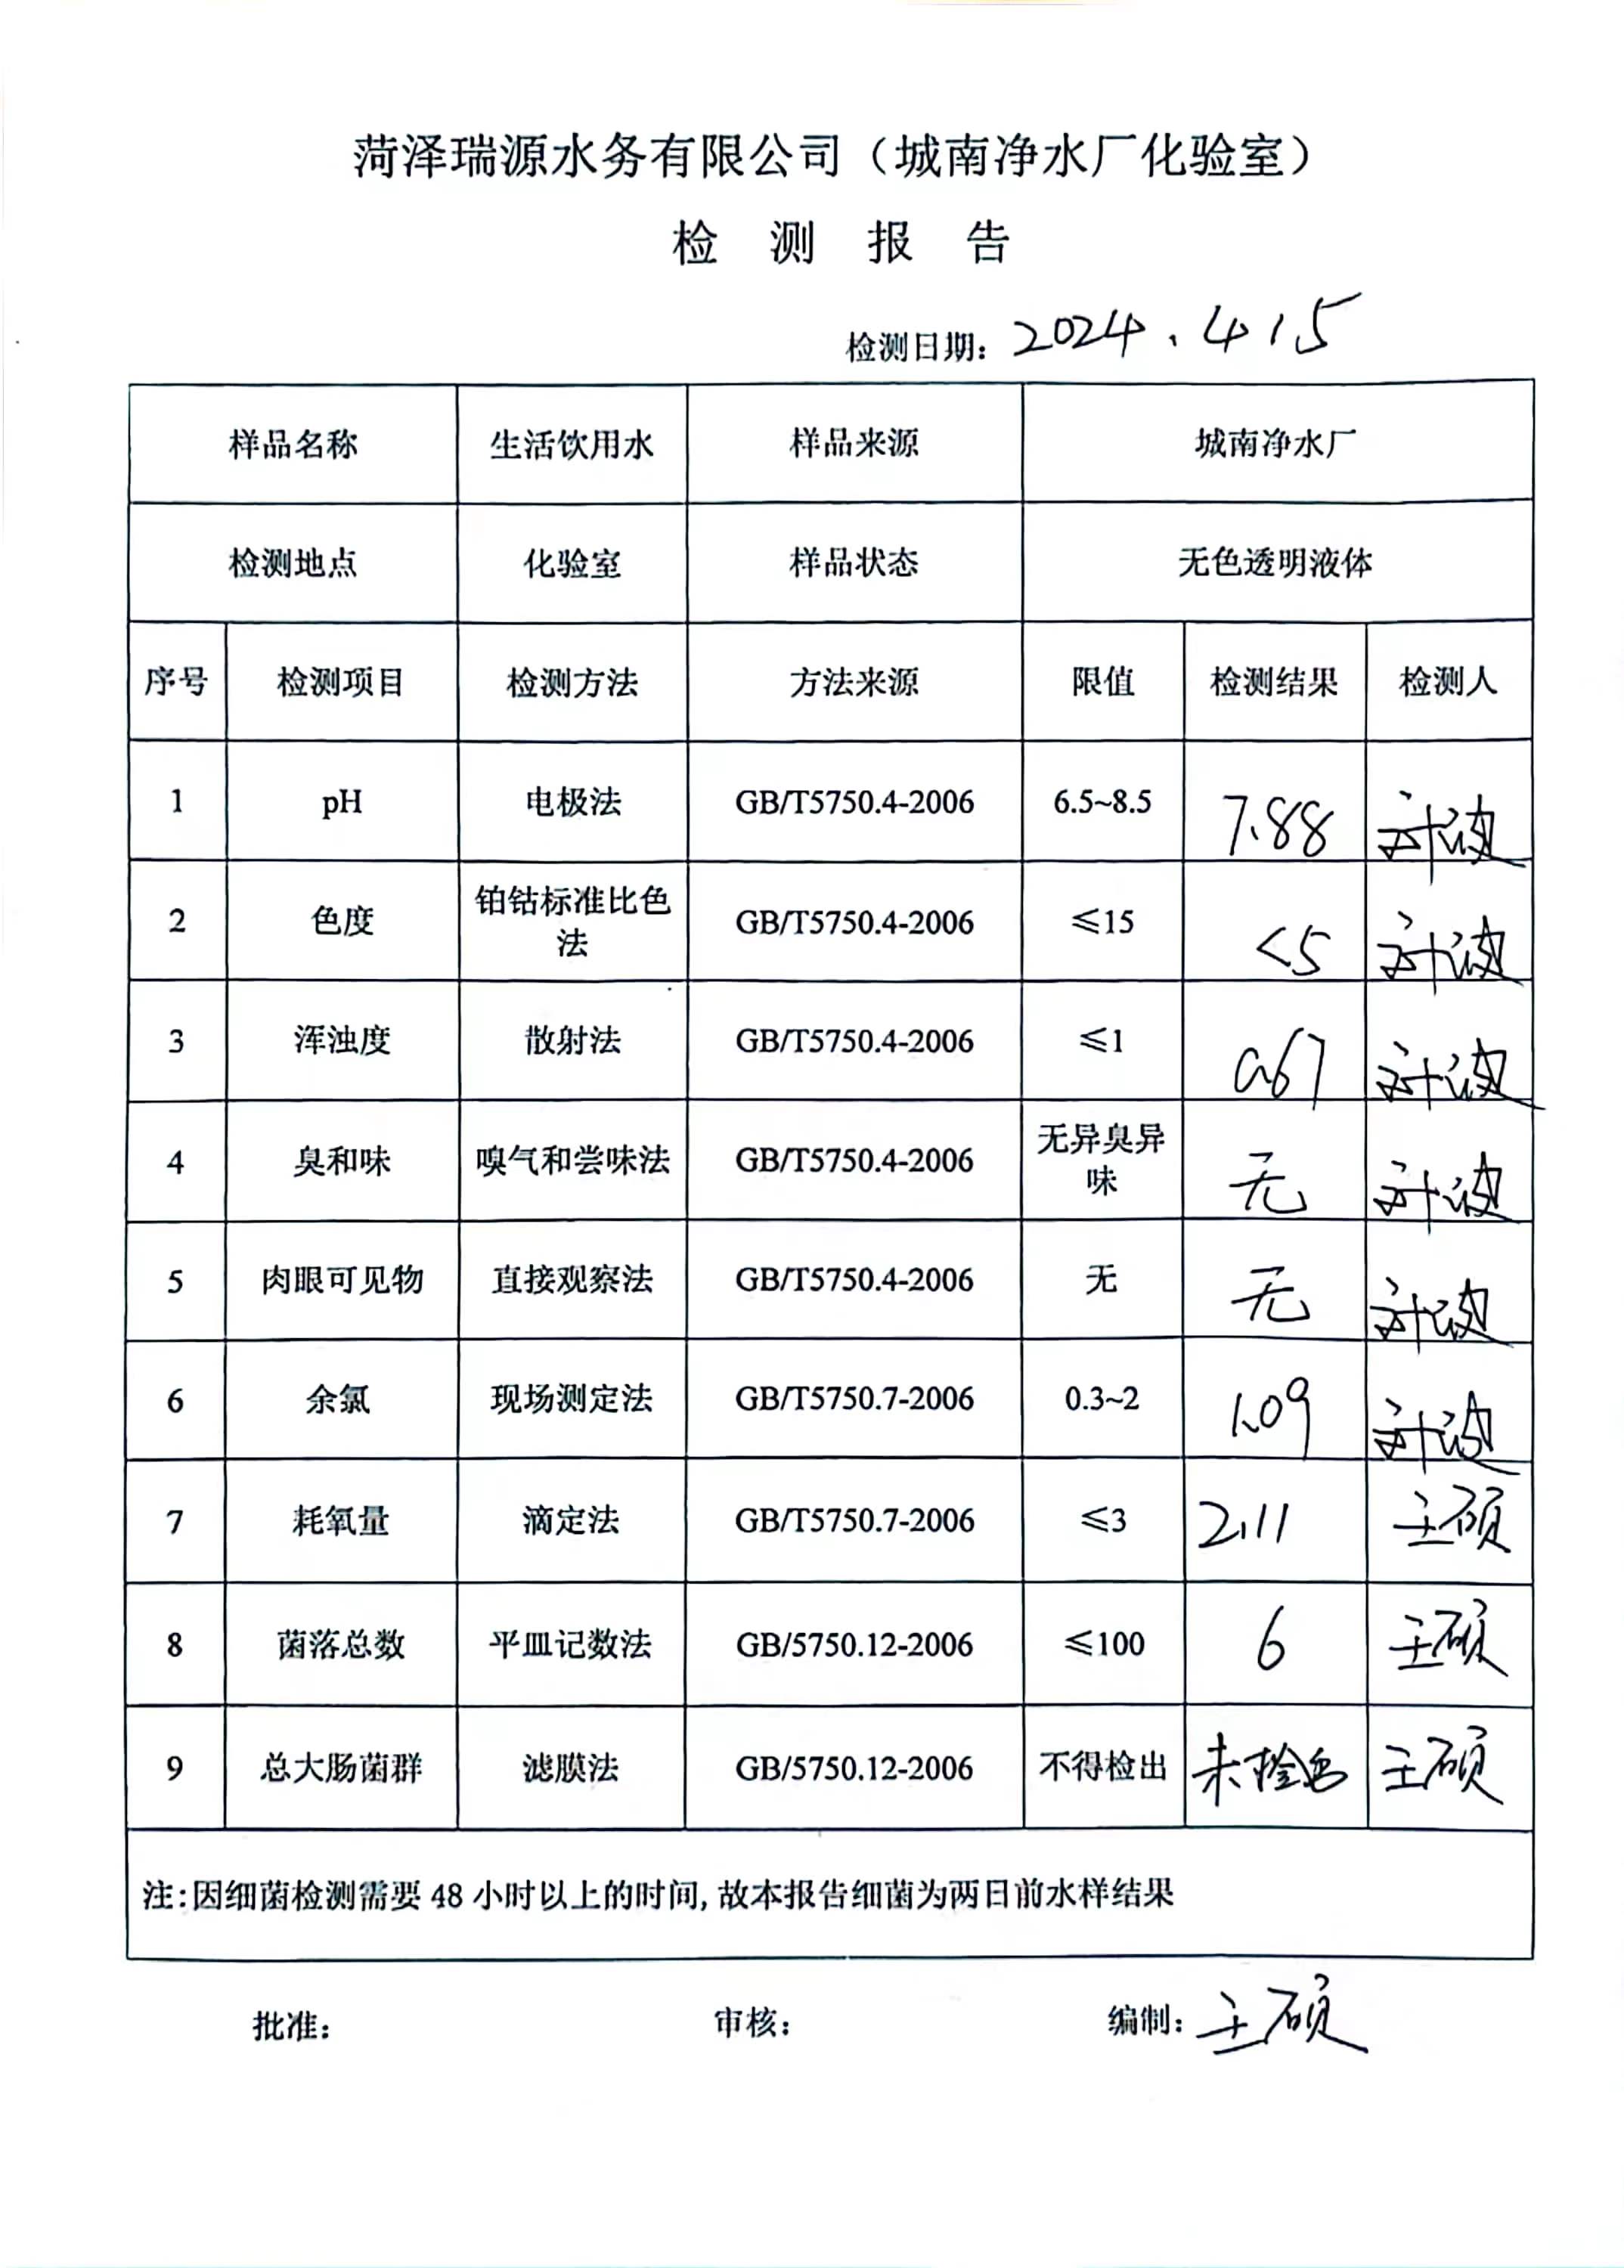 菏泽瑞源水务有限公司（城南净水厂化验室）
检 测 报 告
检测日期：2024.4.15
样品名称 生活饮用水 样品来源 城南净水厂
检测地点 化验室 样品状态 无色透明液体
序号 检测项目 检测方法 方法来源 限值 检测结果 检测人
1 pH 电极法 GB/T5750.4-2006 6.5~8.5 7.88
2 色度 铂钴标准比色法 GB/T5750.4-2006 ≤15 <5
3 浑浊度 散射法 GB/T5750.4-2006 ≤1 0.67
4 臭和味 嗅气和尝味法 GB/T5750.4-2006 无异臭异味 无
5 肉眼可见物 直接观察法 GB/T5750.4-2006 无 无
6 余氯 现场测定法 GB/T5750.7-2006 0.3~2 1.09
7 耗氧量 滴定法 GB/T5750.7-2006 ≤3 2.11 王硕
8 菌落总数 平皿记数法 GB/5750.12-2006 ≤100 6 王硕
9 总大肠菌群 滤膜法 GB/5750.12-2006 不得检出 未检出 王硕
注：因细菌检测需要 48 小时以上的时间，故本报告细菌为两日前水样结果
批准： 审核： 编制：王硕